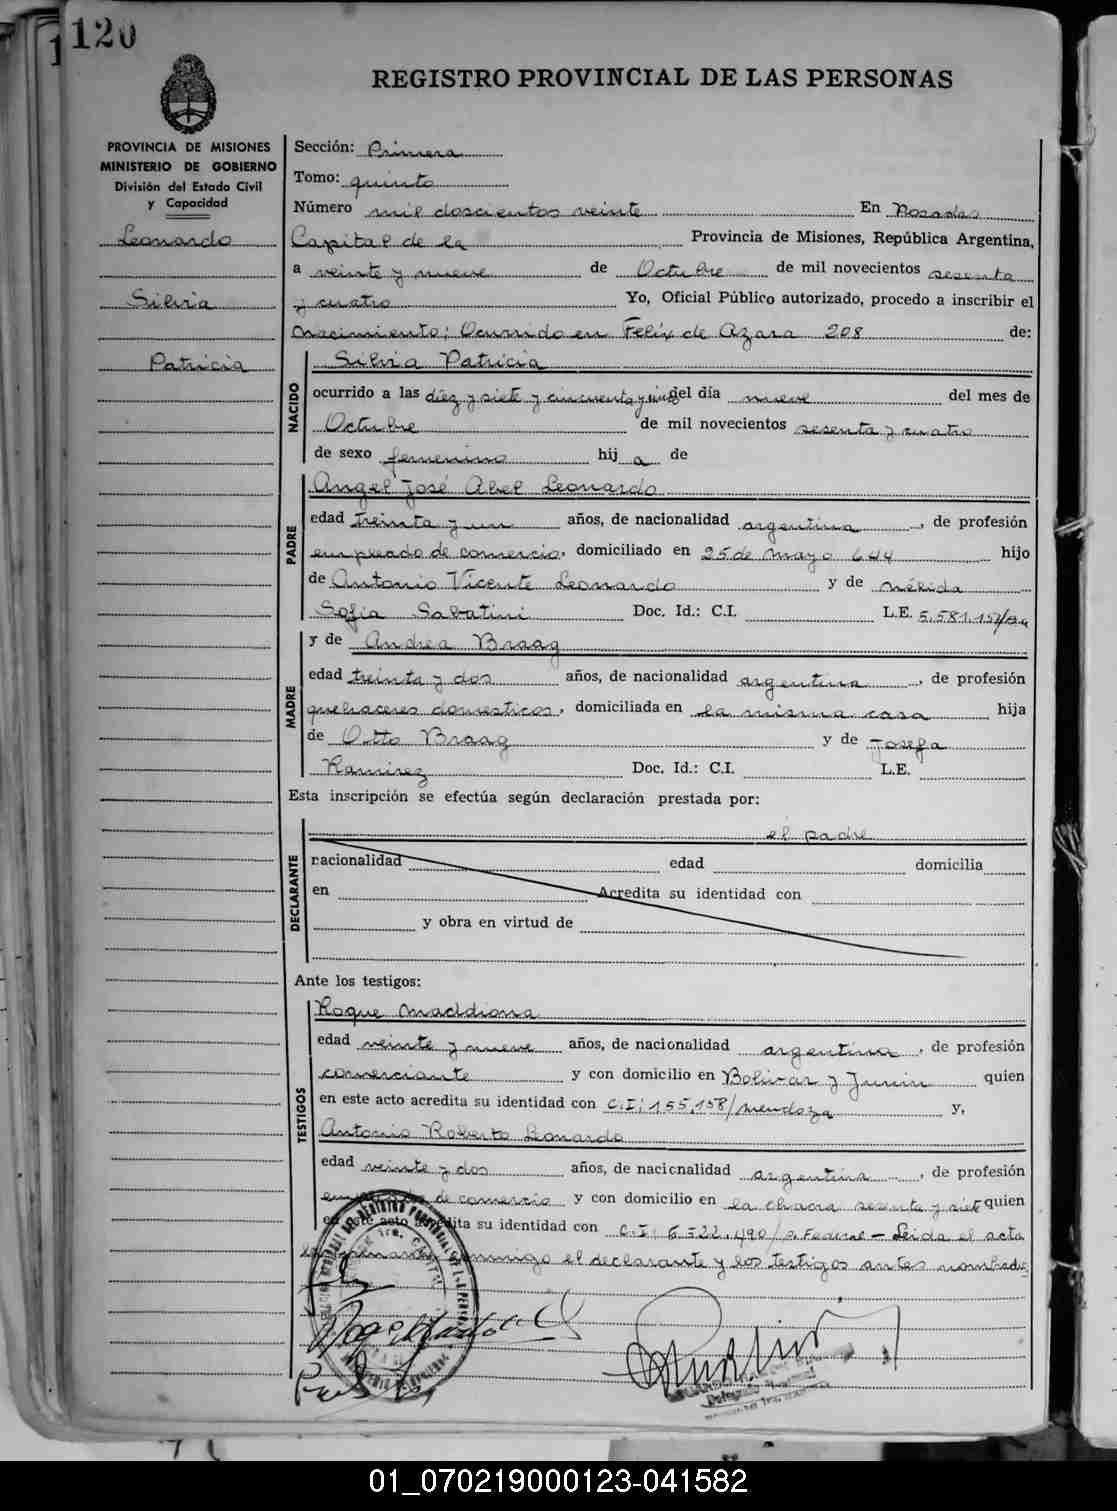 120
REGISTRO PROVINCIAL DE LAS PERSONAS
PROVINCIA DE MISIONES
MINISTERIO DE GOBIERNO
División del Estado Civil
y Capacidad
Leonardo
Silvia
Patricia
Sección: Primera
Tomo: quinto
Número mil doscientos veinte En Posadas
Capital de la Provincia de Misiones, República Argentina,
a veinte y nueve de Octubre de mil novecientos sesenta
y cuatro Yo, Oficial Público autorizado, procedo a inscribir el
nacimiento; Ocurrido en Felix de Azara 208 de:
NACIDO
Silvia Patricia
ocurrido a las diez y siete y cincuenta y del día nueve del mes de
Octubre de mil novecientos sesenta y cuatro
de sexo femenino hij a de
PADRE
Angel José Abel Leonardo
edad treinta y un años, de nacionalidad argentina, de profesión
empleado de comercio, domiciliado en 25 de Mayo 644 hijo
de Antonio Vicente Leonardo y de Nélida
Sofia Sabatini Doc. Id.: C.I. L.E. 5.581.157
MADRE
y de Andrea Braag
edad treinta y dos años, de nacionalidad argentina, de profesión
quehaceres domesticos, domiciliada en la misma casa hija
de Otto Braag y de Josefa
Ramirez Doc. Id.: C.I. L.E.
Esta inscripción se efectúa según declaración prestada por:
DECLARANTE
el padre
nacionalidad edad domicilia
en Acredita su identidad con
y obra en virtud de
Ante los testigos:
TESTIGOS
Roque Maddiona
edad veinte y nueve años, de nacionalidad argentina, de profesión
comerciante y con domicilio en Bolivar y Junin quien
en este acto acredita su identidad con C.I: 155.158/Mendoza y,
Antonio Roberto Leonardo
edad veinte y dos años, de nacionalidad argentina, de profesión
empleado de comercio y con domicilio en la chacra sesenta y siete quien
en este acto acredita su identidad con C.I: 6.522.490/P. Federal - Leida el acta
conmigo el declarante y los testigos antes nombrados
01_070219000123-041582